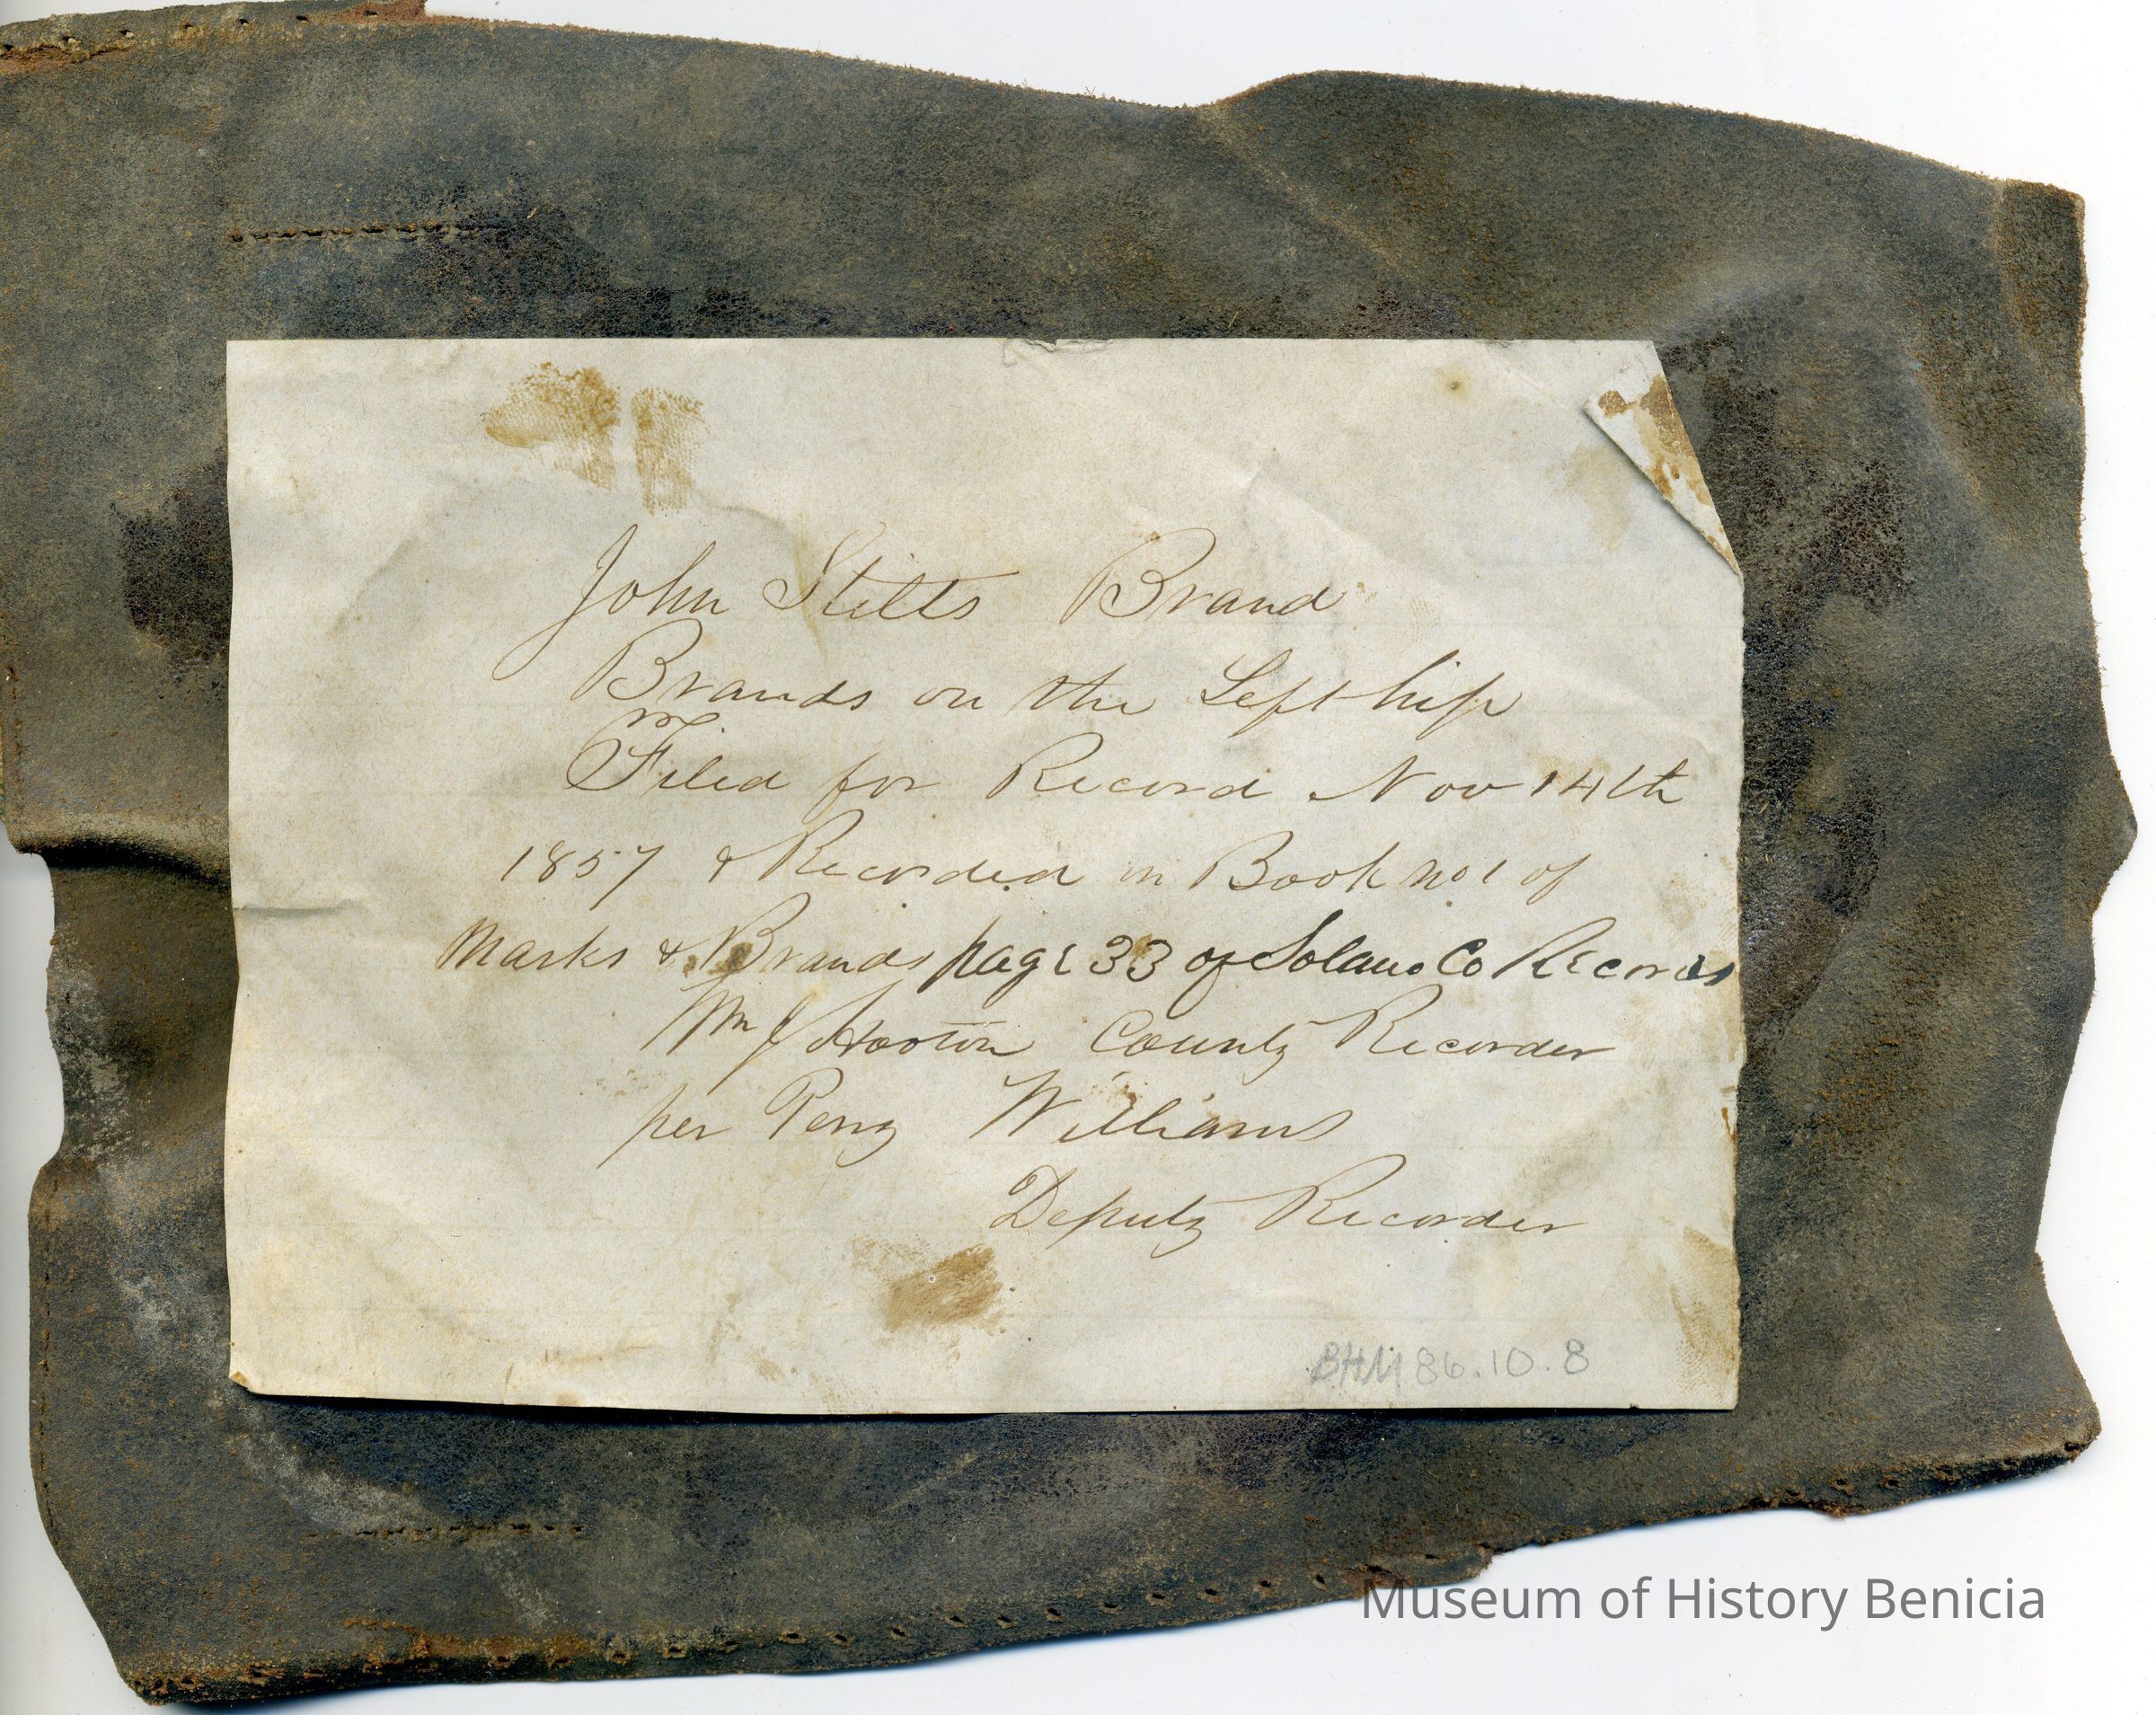 John Stilts Brand
Brands on the Left hip
Filed for Record Nov 14th
1857 & Recorded in Book no 1 of
Marks & Brands page 33 of Solano Co Records
Wm J Hooton County Recorder
per Perry Williams
Deputy Recorder
BHM 86.10.8
Museum of History Benicia